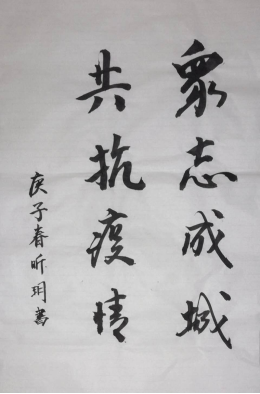 眾志成城
共抗疫情
庚子春昕玥書